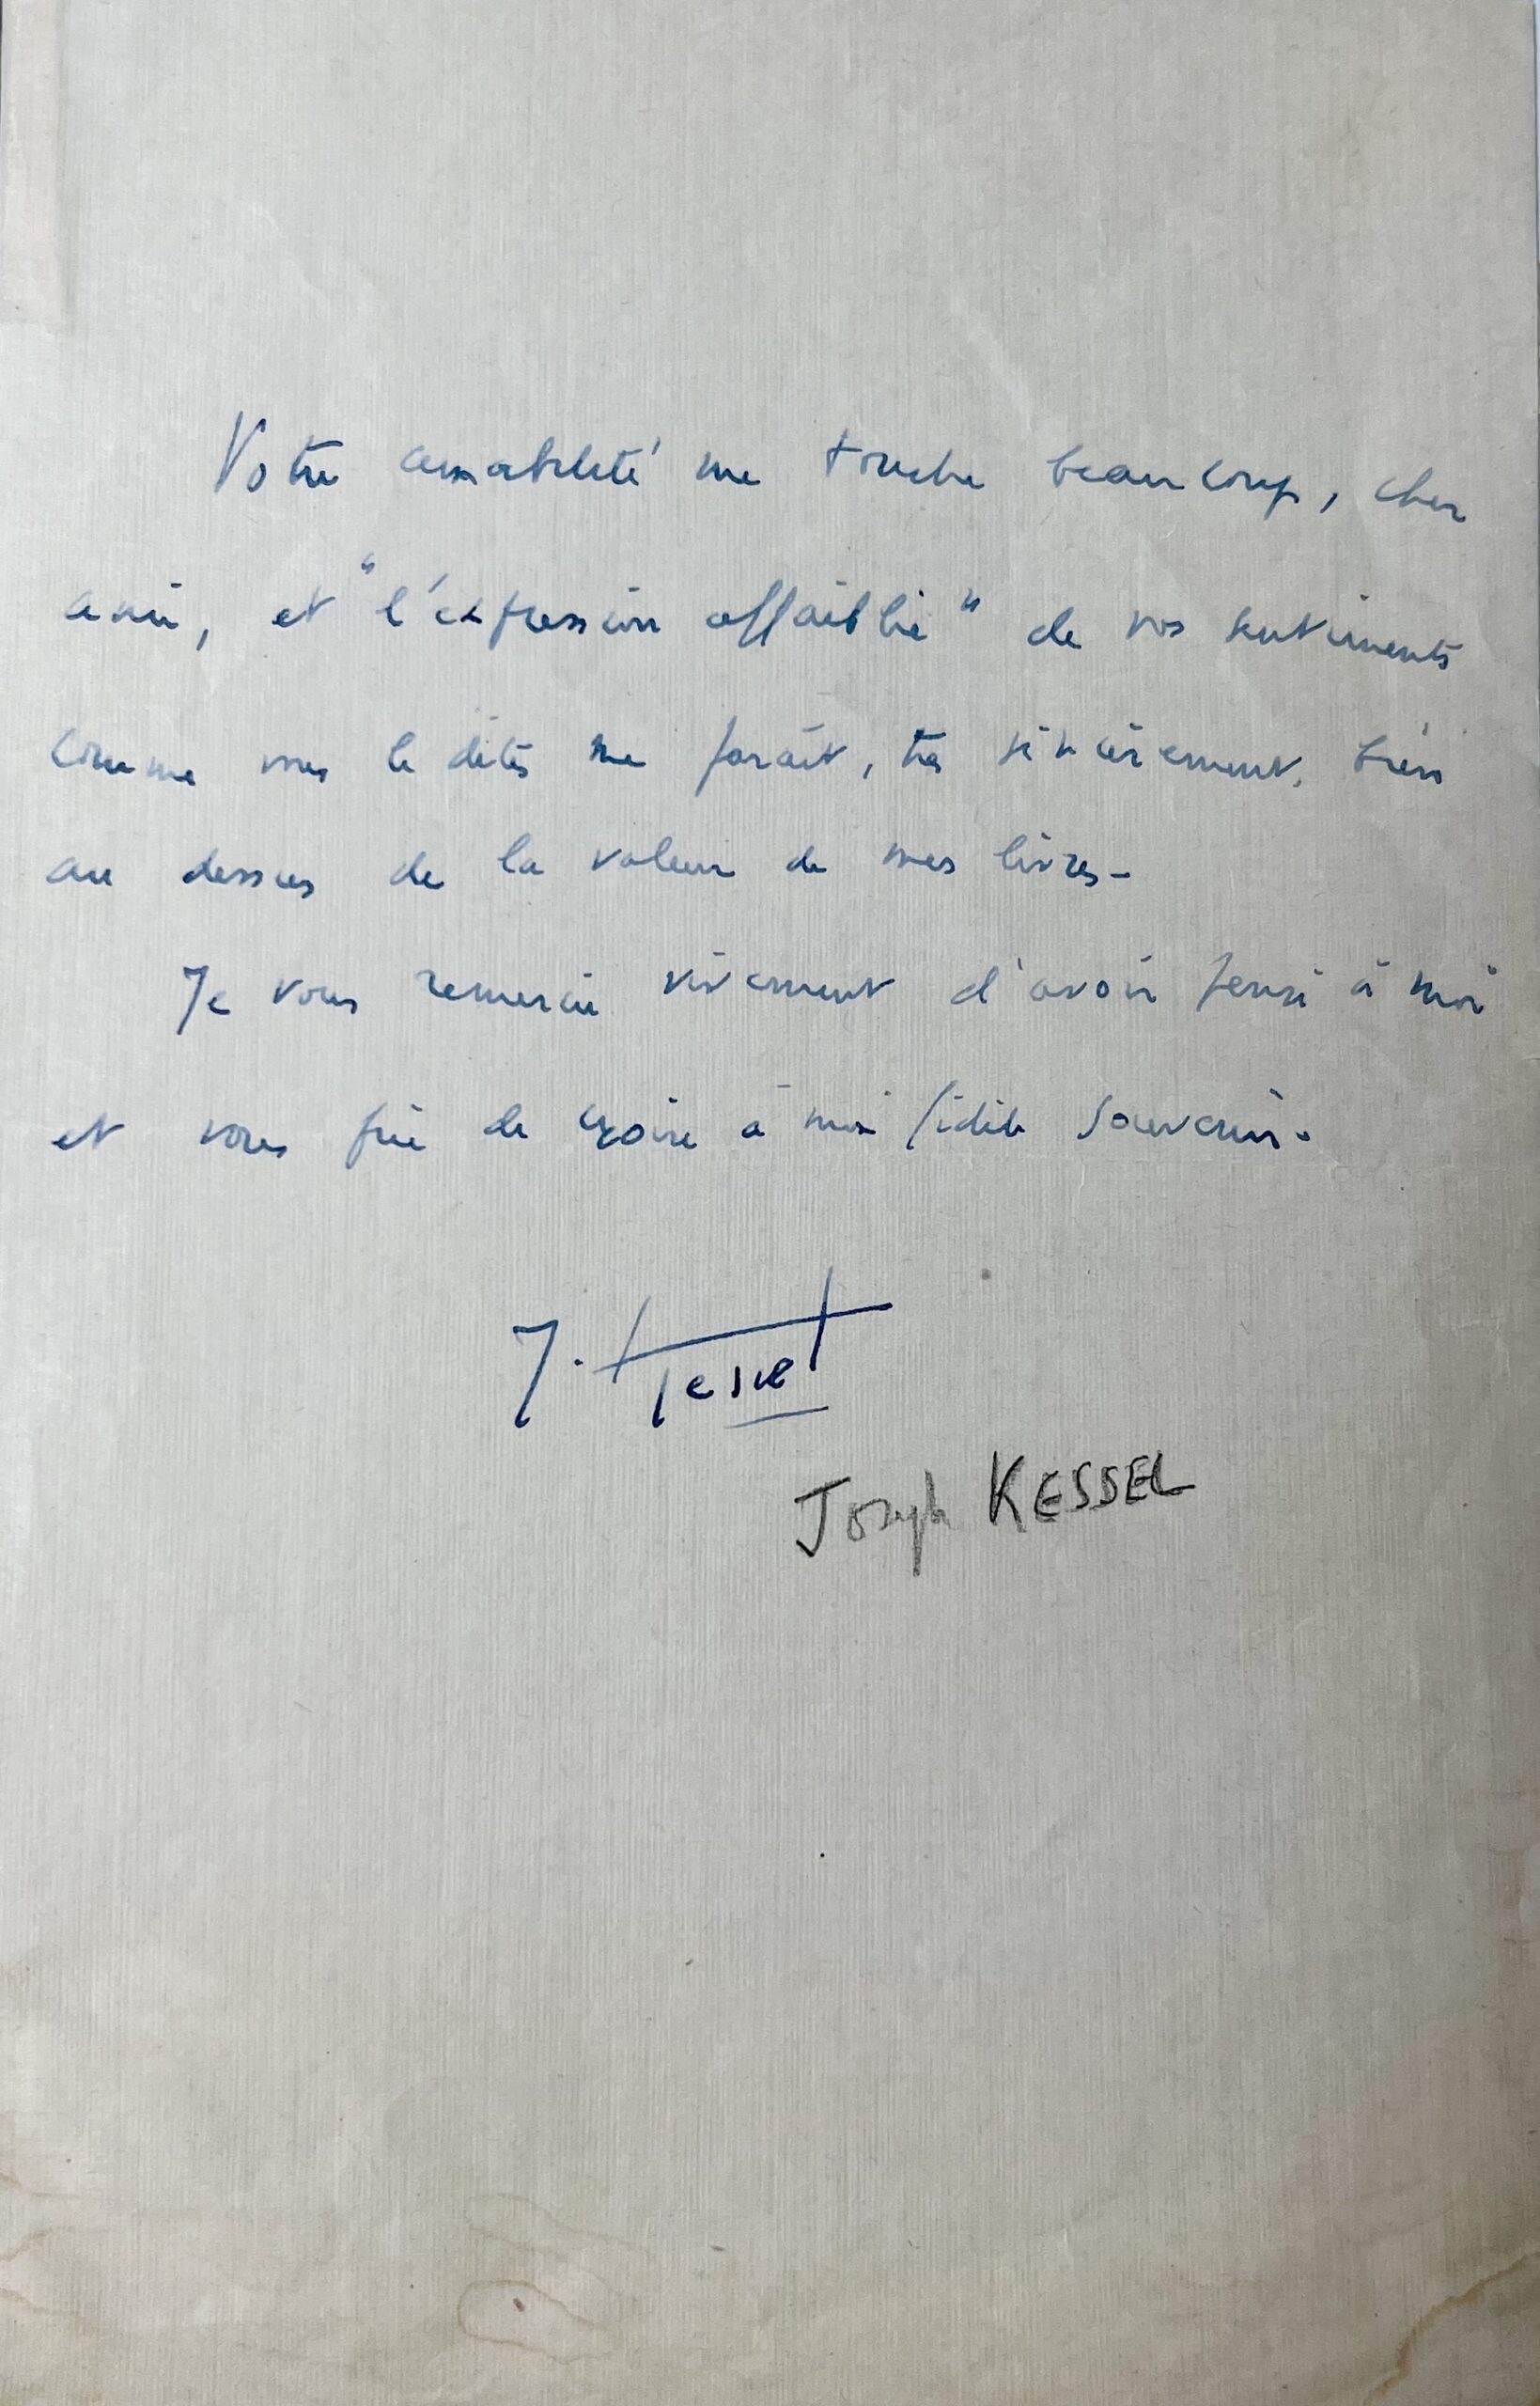 Votre amabilité me touche beaucoup, cher
ami, et "l'expression affaiblie" de vos sentiments
comme vous le dites me paraît, très sincèrement, bien
au dessus de la valeur de mes livres -
Je vous remercie vivement d'avoir pensé à moi
et vous prie de croire à mon fidèle souvenir.
J. Kessel
Joseph KESSEL